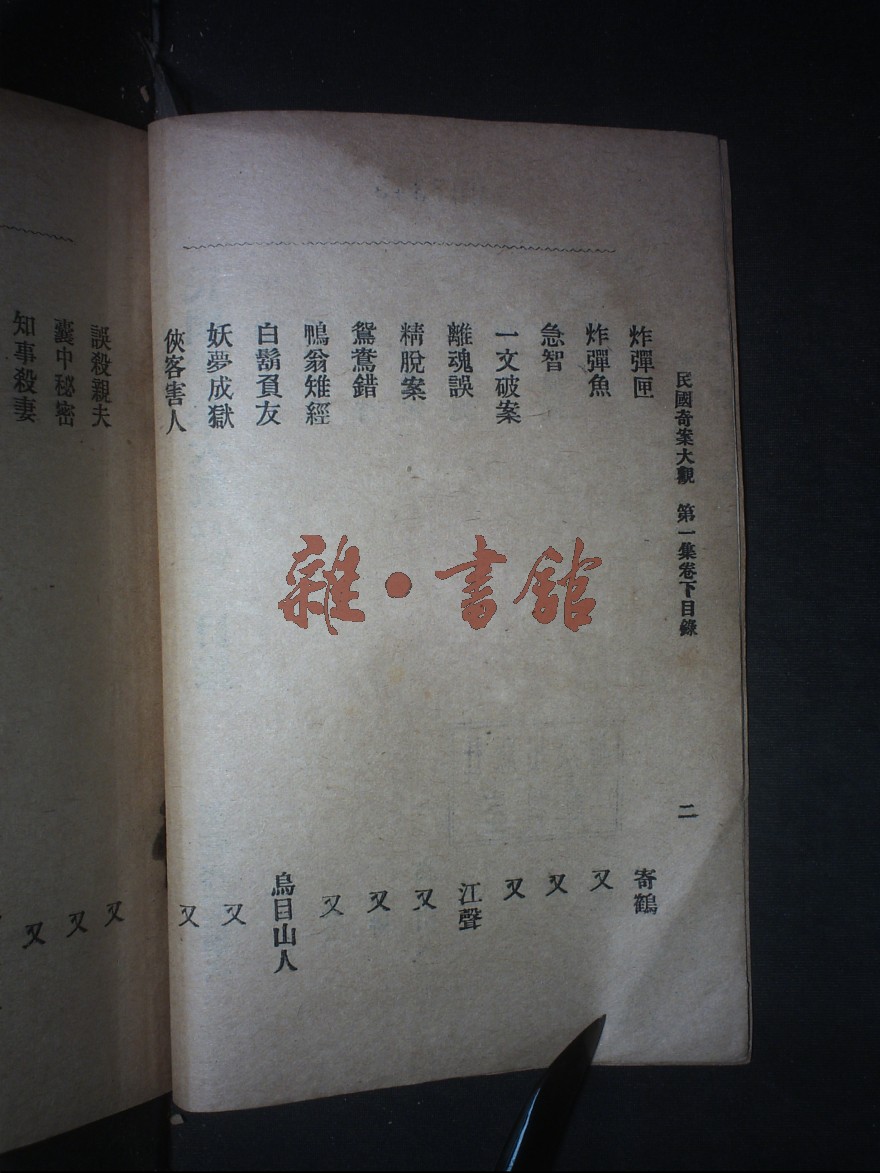 民國奇案大觀 第一集卷下目錄 二
炸彈匣 寄鶴
炸彈魚 又
急智 又
一文破案 又
離魂誤 江聲
精脫案 又
鴛鴦錯 又
鴨翁雉經 又
白鬍負友 烏目山人
妖夢成獄 又
俠客害人 又
誤殺親夫 又
囊中秘密 又
知事殺妻 又
雜·書館